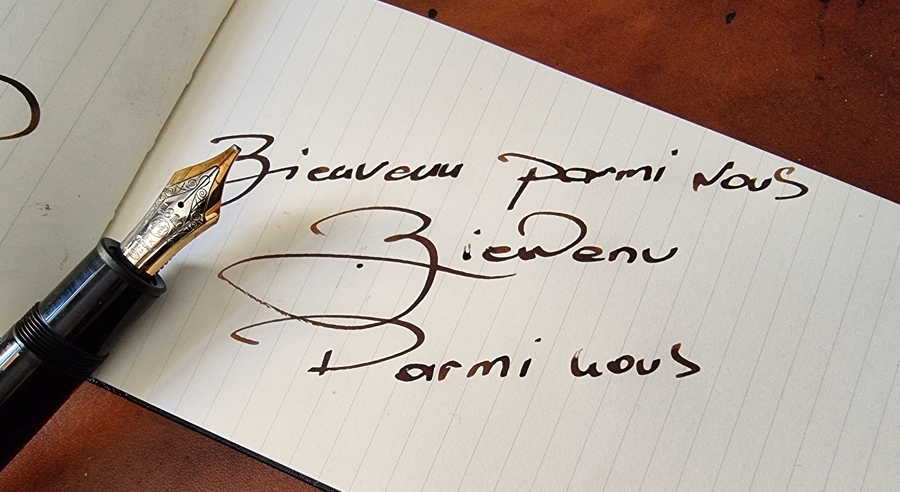 Bienvenu parmi nous
Bienvenu
Parmi nous